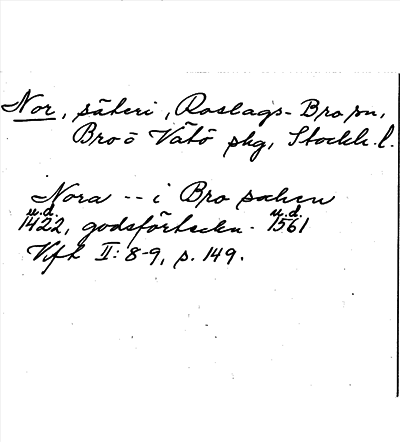 Nor, säteri, Roslags-Bro sn,
Broö Vätö skg, Stockh. l.
Nora -- i Bro sochen
u.d. u.d.
1422, godsförteckn. 1561
Vfh II: 8-9, s. 149.